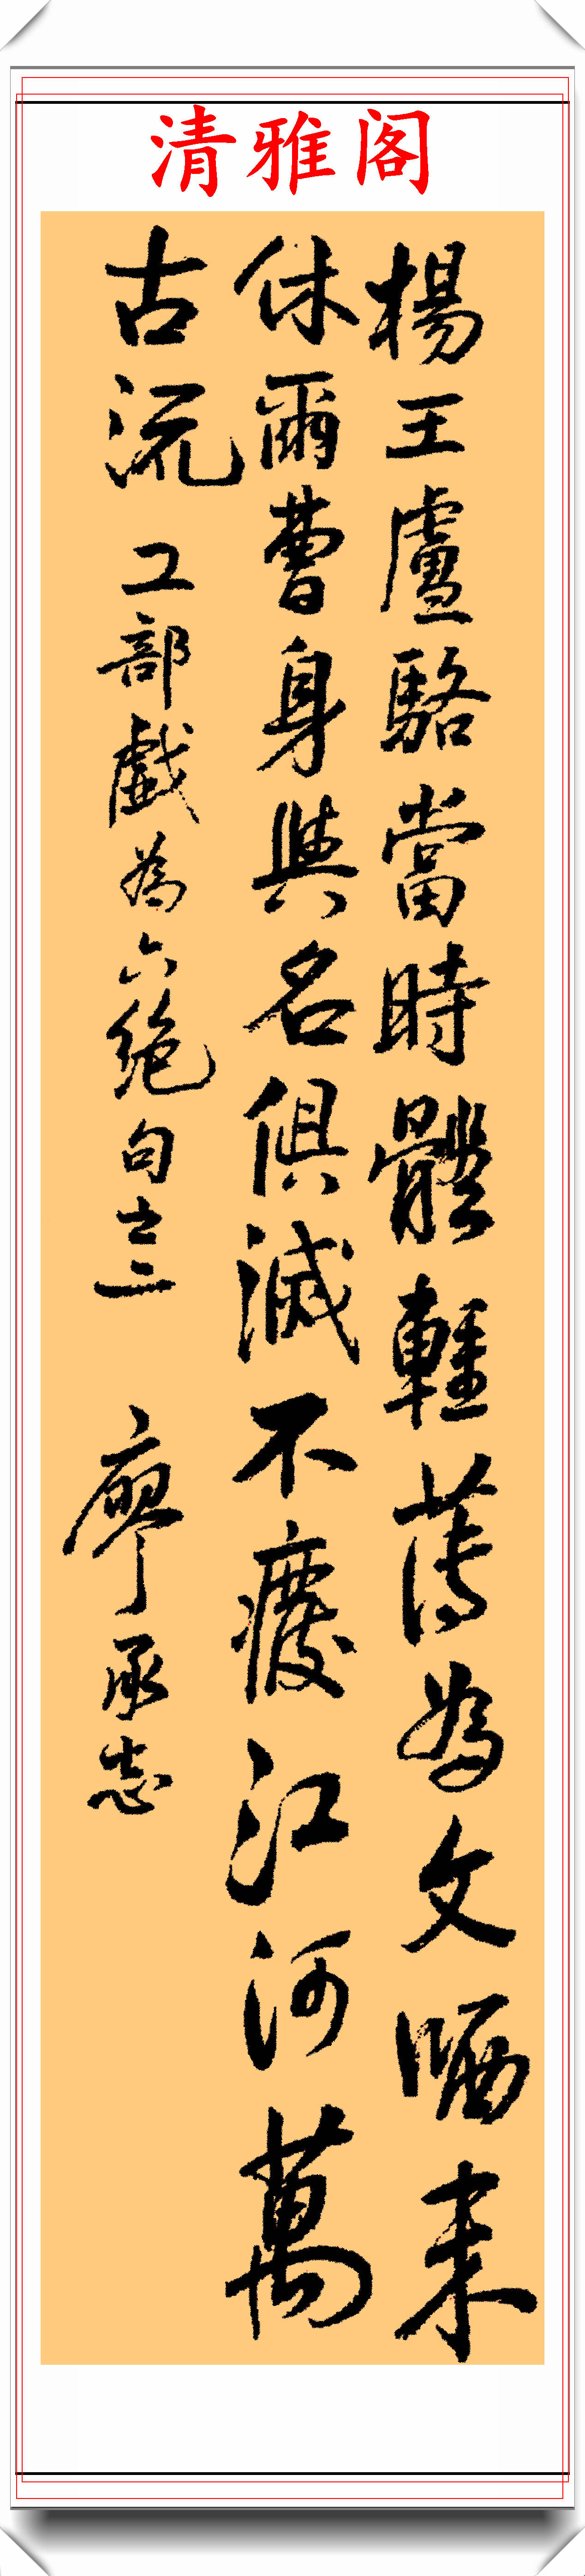 清雅阁
楊王盧駱當時體輕薄為文哂未
休爾曹身與名俱滅不廢江河萬
古流 工部戲為六絕句之二 廖承志